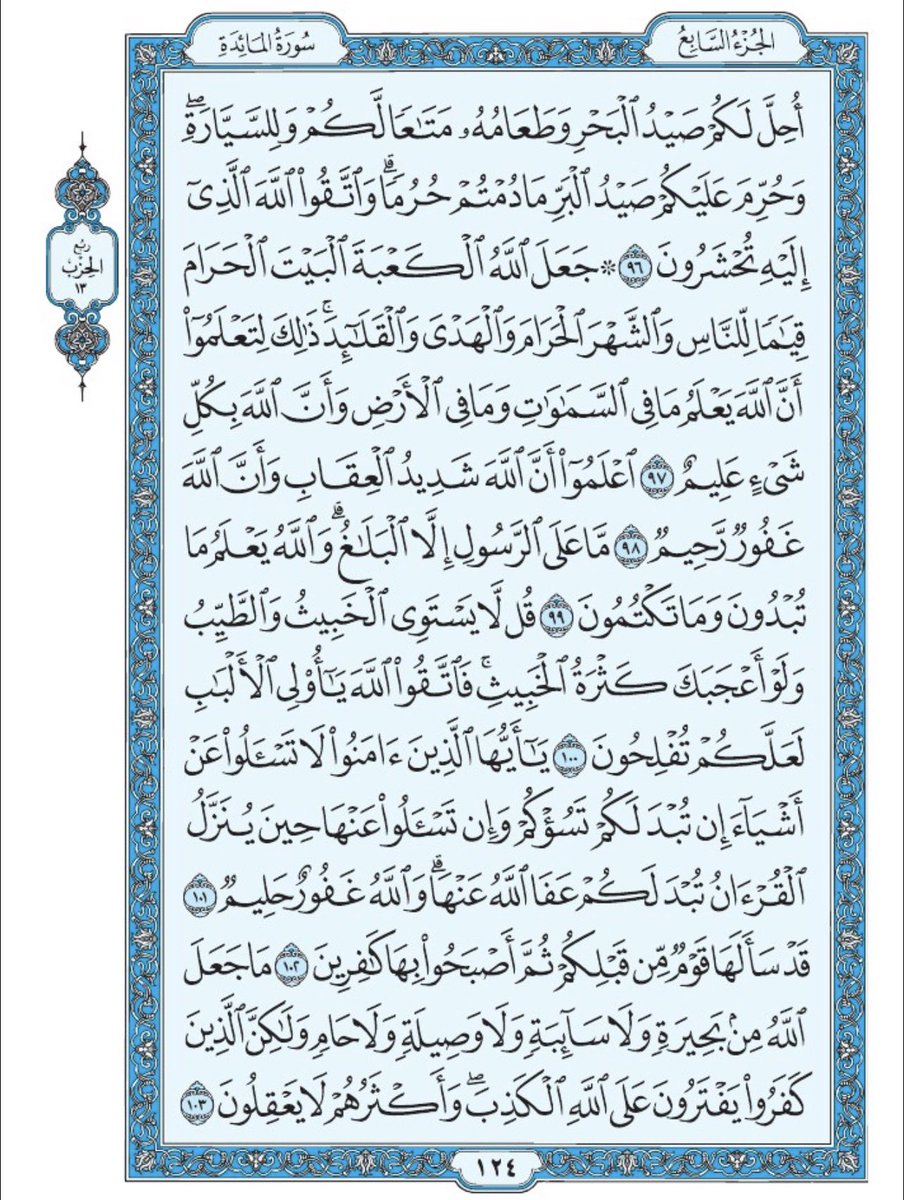 الجُزْءُ السَّابِعُ
سُورَةُ المَائِدَةِ
أُحِلَّ لَكُمْ صَيْدُ ٱلْبَحْرِ وَطَعَامُهُۥ مَتَٰعًا لَّكُمْ وَلِلسَّيَّارَةِۖ
وَحُرِّمَ عَلَيْكُمْ صَيْدُ ٱلْبَرِّ مَا دُمْتُمْ حُرُمًاۗ وَٱتَّقُوا۟ ٱللَّهَ ٱلَّذِىٓ
إِلَيْهِ تُحْشَرُونَ ٩٦ ۞ جَعَلَ ٱللَّهُ ٱلْكَعْبَةَ ٱلْبَيْتَ ٱلْحَرَامَ
قِيَٰمًا لِّلنَّاسِ وَٱلشَّهْرَ ٱلْحَرَامَ وَٱلْهَدْىَ وَٱلْقَلَٰٓئِدَۚ ذَٰلِكَ لِتَعْلَمُوٓا۟
أَنَّ ٱللَّهَ يَعْلَمُ مَا فِى ٱلسَّمَٰوَٰتِ وَمَا فِى ٱلْأَرْضِ وَأَنَّ ٱللَّهَ بِكُلِّ
شَىْءٍ عَلِيمٌ ٩٧ ٱعْلَمُوٓا۟ أَنَّ ٱللَّهَ شَدِيدُ ٱلْعِقَابِ وَأَنَّ ٱللَّهَ
غَفُورٌ رَّحِيمٌ ٩٨ مَّا عَلَى ٱلرَّسُولِ إِلَّا ٱلْبَلَٰغُۗ وَٱللَّهُ يَعْلَمُ مَا
تُبْدُونَ وَمَا تَكْتُمُونَ ٩٩ قُل لَّا يَسْتَوِى ٱلْخَبِيثُ وَٱلطَّيِّبُ
وَلَوْ أَعْجَبَكَ كَثْرَةُ ٱلْخَبِيثِۚ فَٱتَّقُوا۟ ٱللَّهَ يَٰٓأُو۟لِى ٱلْأَلْبَٰبِ
لَعَلَّكُمْ تُفْلِحُونَ ١٠٠ يَٰٓأَيُّهَا ٱلَّذِينَ ءَامَنُوا۟ لَا تَسْـَٔلُوا۟ عَنْ
أَشْيَآءَ إِن تُبْدَ لَكُمْ تَسُؤْكُمْ وَإِن تَسْـَٔلُوا۟ عَنْهَا حِينَ يُنَزَّلُ
ٱلْقُرْءَانُ تُبْدَ لَكُمْ عَفَا ٱللَّهُ عَنْهَاۗ وَٱللَّهُ غَفُورٌ حَلِيمٌ ١٠١
قَدْ سَأَلَهَا قَوْمٌ مِّن قَبْلِكُمْ ثُمَّ أَصْبَحُوا۟ بِهَا كَٰفِرِينَ ١٠٢ مَا جَعَلَ
ٱللَّهُ مِنۢ بَحِيرَةٍ وَلَا سَآئِبَةٍ وَلَا وَصِيلَةٍ وَلَا حَامٍ وَلَٰكِنَّ ٱلَّذِينَ
كَفَرُوا۟ يَفْتَرُونَ عَلَى ٱللَّهِ ٱلْكَذِبَۖ وَأَكْثَرُهُمْ لَا يَعْقِلُونَ ١٠٣
رُبْعُ
الحِزْبِ
١٣
١٢٤